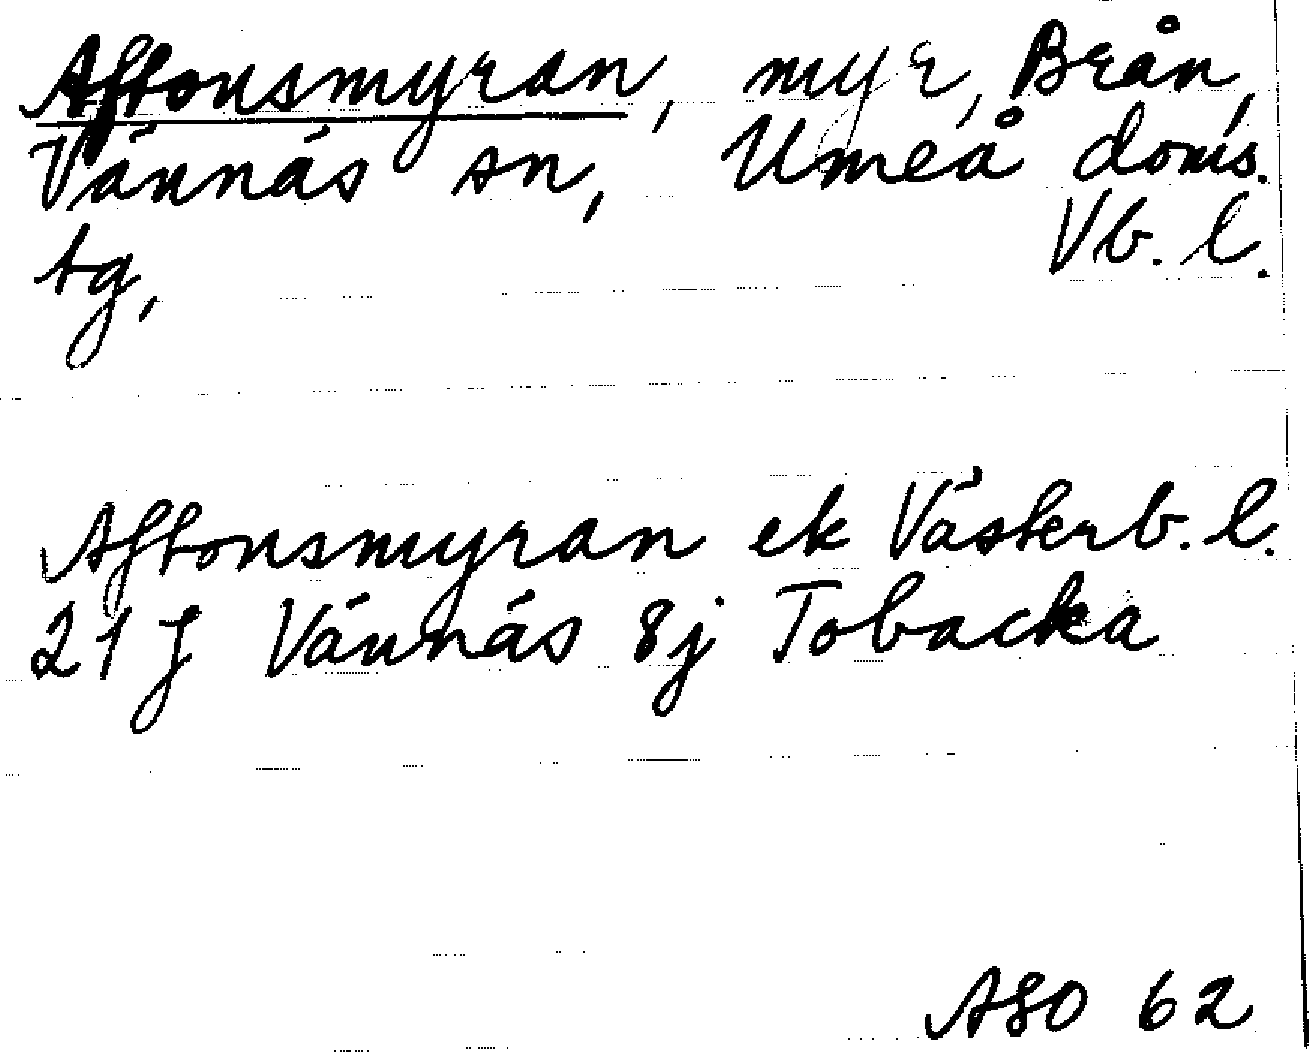 Aftonsmyran, myr, Brån,
Vännäs sn, Umeå doms.
tg, Vb. l.
Aftonsmyran ek Västerb. l.
21 f Vännäs 8j Tobacka
ASO 62